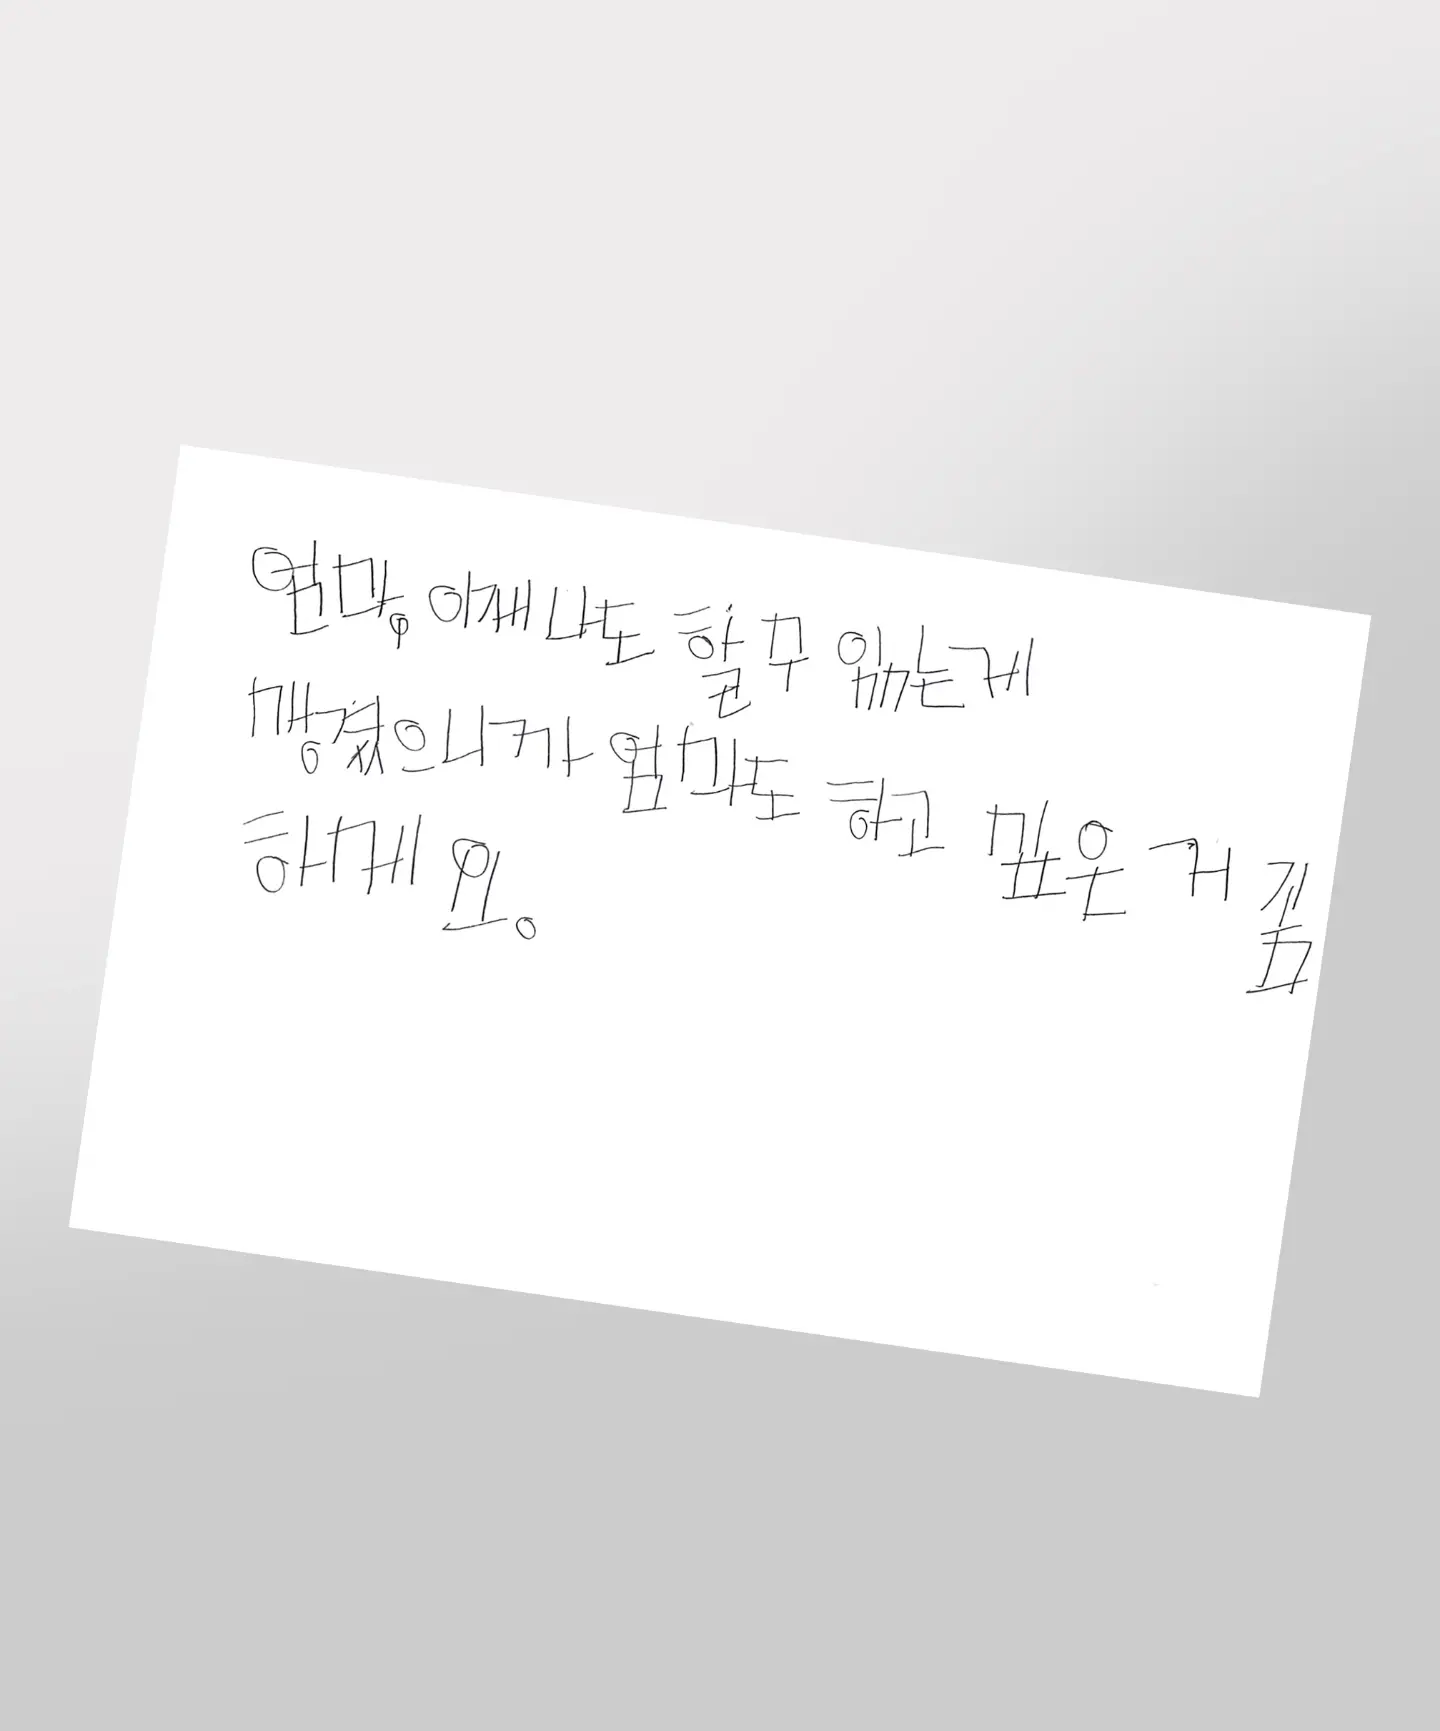 엄마, 이제 나도 할 수 있는게
생겼으니까 엄마도 하고 싶은 거 좀
하세요.